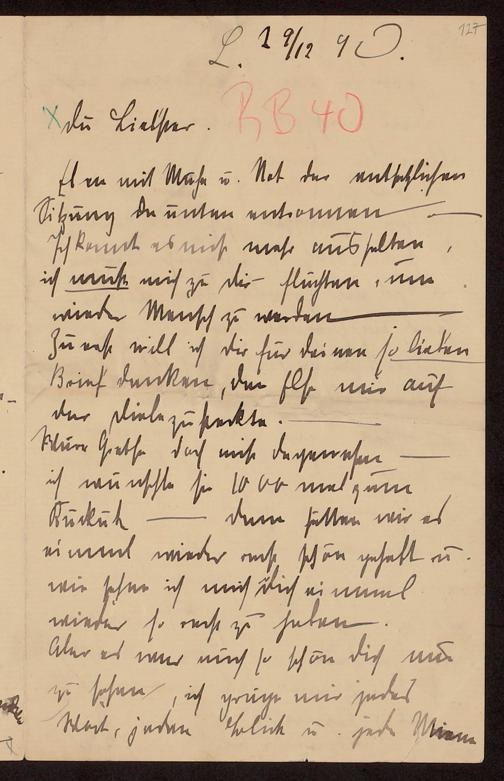 127
L. 29/12 90.
RB 40
x Du Liebster.
Eben mit Mühe u. Not der entsetzlichen
Sitzung da unten entronnen —
Ich konnte es nicht mehr aushalten,
ich muß mich zu dir flüchten, um
wieder Mensch zu werden —
Zuerst will ich dir für deinen so lieben
Brief danken, den Else mir auf
der Diele zusteckte. —
Wäre Grethe doch nicht dagewesen —
ich wünschte sie 1000 mal zum
Kuckuk — dann hätten wir es
einmal wieder recht schön gehabt u.
wie sehne ich mich dich einmal
wieder so recht zu haben.
Aber es war auch so schön dich nur
zu sehen, ich präge mir jedes
Wort, jeden Blick u. jede Miene